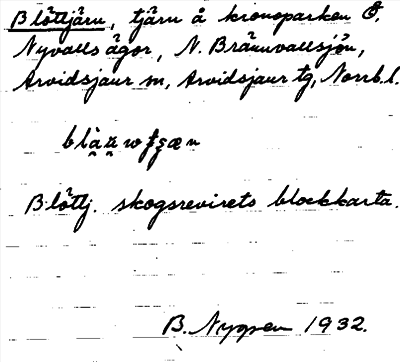 Blöttjärn, tjärn å kronoparken Ö.
Nyvalls ägor, N. Brännvallsjön,
Arvidsjaur sn, Arvidsjaur tg, Norrb. l.
Blöttj. skogsrevirets blockkarta.
B. Nygren 1932.